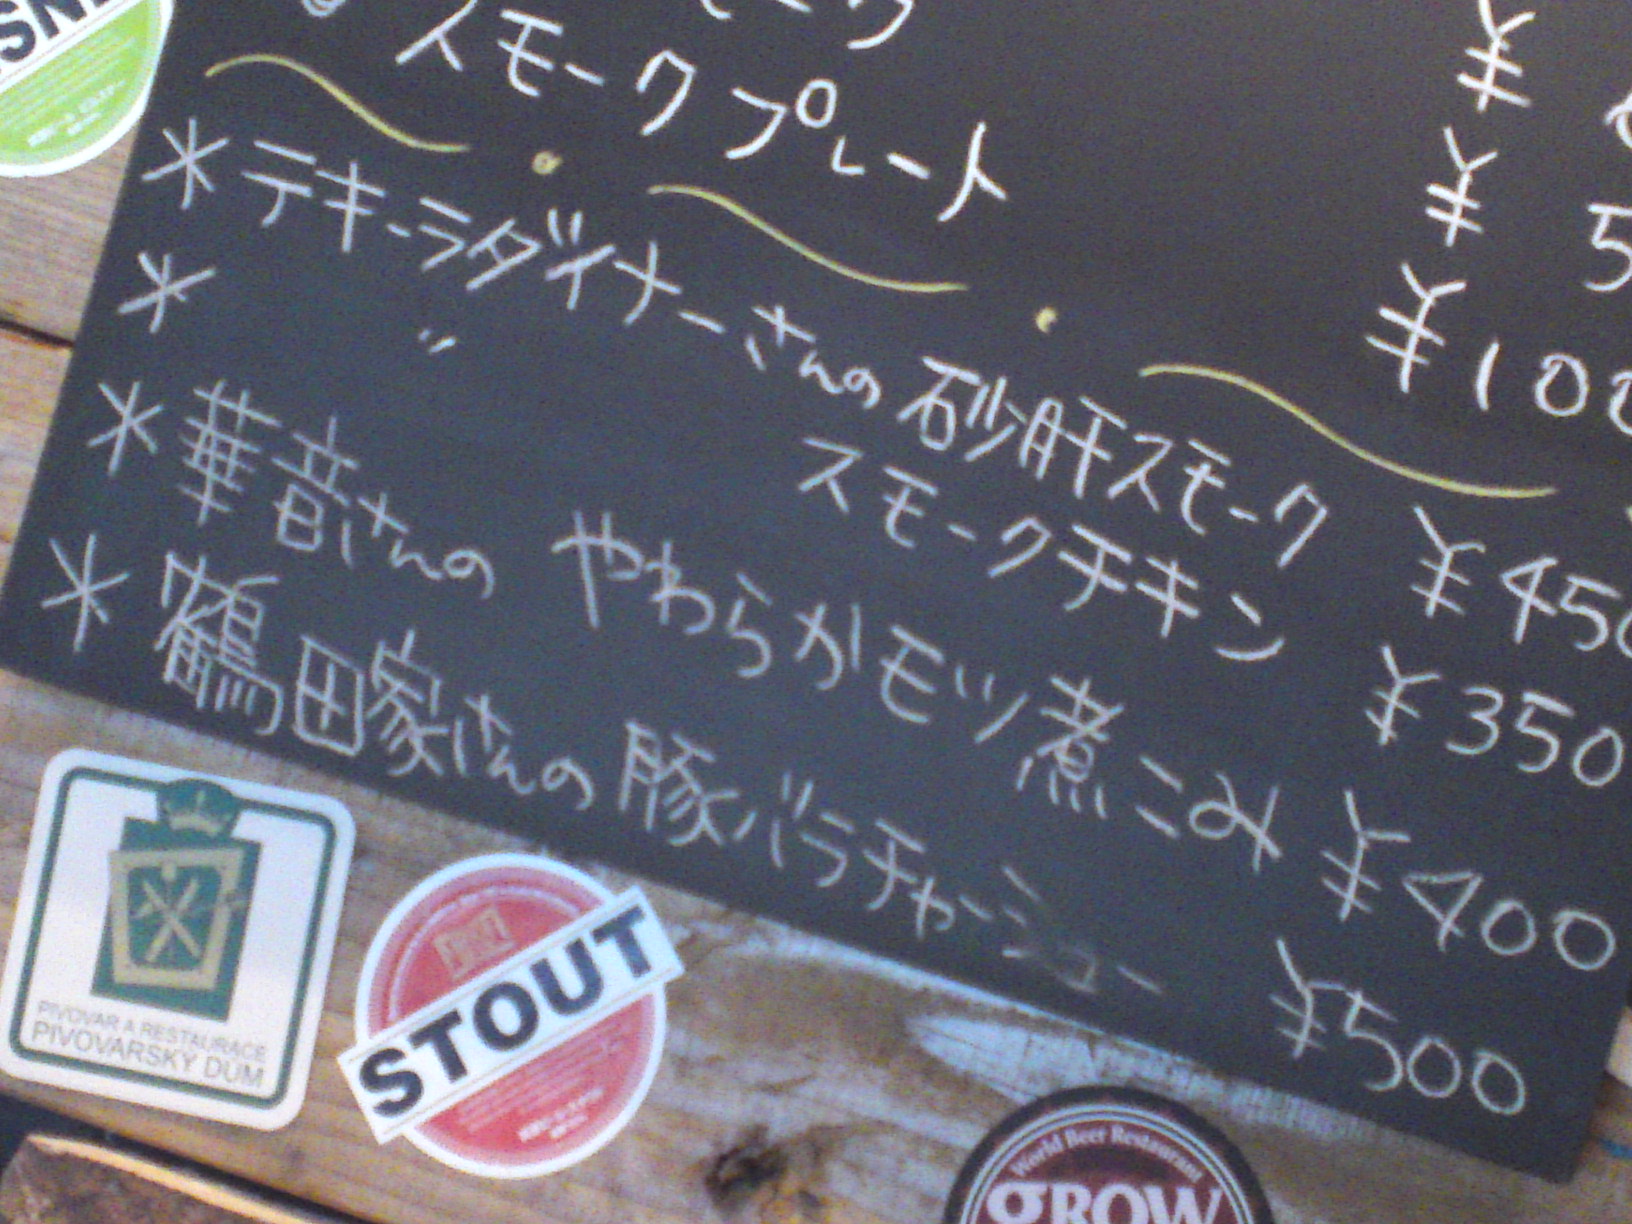 モーク ¥
スモークプレート ¥ 5
¥100
*テキーラダイナーさんの 砂肝スモーク ¥450
* 〃 スモークチキン ¥350
*華音さんの やわらかモツ煮こみ ¥400
*鶴田家さんの 豚バラチャーシュー ¥500
PIVOVAR A RESTAURACE
PIVOVARSKY DUM
STOUT
World Beer Restaurant
GROW